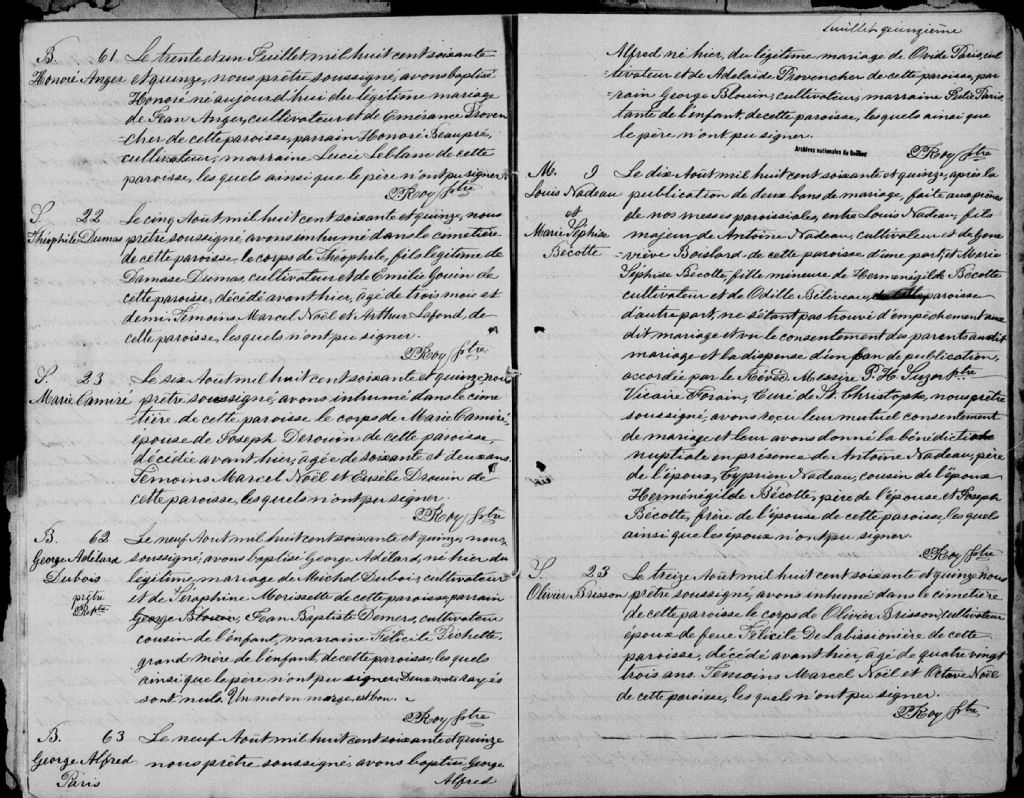 B. 61
Honoré Anger
Le trente et un Juillet mil huit cent soixante
et quinze, nous prêtre soussigné, avons baptisé
Honoré né aujourd'hui du légitime mariage
de Jean Anger, cultivateur et de Emérance Proven
-cher de cette paroisse, parrain Honoré Beaupré,
cultivateur, marraine Lucie Leblanc de cette
paroisse, les quels ainsi que le père n'ont pu signer.
P Roy ptre
S. 22
Théophile Dumas
Le cinq Août mil huit cent soixante et quinze, nous
prêtre soussigné avons inhumé dans le cimetière
de cette paroisse, le corps de Théophile, fils légitime de
Damase Dumas, cultivateur et de Emilie Gouin de
cette paroisse, décédé avant hier, âgé de trois mois et
demi. Témoins Marcel Noël et Arthur Lafond, de
cette paroisse, les quels n'ont pu signer.
P Roy ptre
S. 23
Marie Camiré
Le six Août mil huit cent soixante et quinze, nous
prêtre soussigné, avons inhumé dans le cime
tière de cette paroisse le corps de Marie Camiré,
épouse de Joseph Derouin de cette paroisse,
décédée avant hier, âgée de soixante et deux ans.
Témoins Marcel Noël et Eusèbe Drouin de
cette paroisse, les quels n'ont pu signer.
P Roy ptre
B. 62
George Adélard
Dubois
prêtre
P R ptre
Le neuf Août mil huit cent soixante et quinze, nous,
soussigné, avons baptisé George Adélard, né hier du
légitime mariage de Michel Dubois, cultivateur
et de Séraphine Morissette de cette paroisse, parrain
George Blouin, Jean Baptiste Demers, cultivateur
cousin de l'enfant, marraine Félicité Pichette,
grand mère de l'enfant, de cette paroisse, les quels
ainsi que le père n'ont pu signer. Deux mots rayés
sont nuls. Un mot en marge est bon.
P Roy ptre
B. 63
George Alfred
Paris
Le neuf Août mil huit cent soixante et quinze
nous prêtre soussigné, avons baptisé George
Alfred
Feuillet quinzième
Alfred né hier, du légitime mariage de Ovide Paris, cul
tivateur et de Adelaide Provencher de cette paroisse, par
rain George Blouin, cultivateur, marraine Paris
tante de l'enfant, de cette paroisse, les quels ainsi que
le père n'ont pu signer.
Archives nationales du Québec
P Roy ptre
M. 9
Louis Nadeau
et
Marie Séphise
Bécotte
Le dix Août mil huit cent soixante et quinze, après la
publication de deux bans de mariage, faite aux prônes
de nos messes paroissiales, entre Louis Nadeau, fils
majeur de Antoine Nadeau, cultivateur et de Gene
viève Boislard de cette paroisse d'une part; et Marie
Séphise Bécotte, fille mineure de Hermenégilde Bécotte
cultivateur et de Odille Béliveau, de cette paroisse
d'autre part, ne s'étant pas trouvé d'empêchement au
dit mariage et vu le consentement des parents au dit
mariage et la dispense d'un ban de publication,
accordée par le Révd. Messire P. H. Suzor ptre
Vicaire Forain, Curé de St. Christophe, nous prêtre
soussigné, avons reçu leur mutuel consentement
de mariage et leur avons donné la bénédiction
nuptiale en présence de Antoine Nadeau, père
de l'époux, Cyprien Nadeau, cousin de l'époux
Herménégilde Bécotte, père de l'épouse et Joseph
Bécotte, frère de l'épouse de cette paroisse, les quels
ainsi que les époux n'ont pu signer.
P Roy ptre
S. 23
Olivier Brisson
Le treize Août mil huit cent soixante et quinze nous
prêtre soussigné, avons inhumé dans le cimetière
de cette paroisse le corps de Olivier Brisson, cultivateur
époux de feue Félicité De Labissionière de cette
paroisse, décédé avant hier, âgé de quatre vingt
trois ans. Témoins Marcel Noël et Octave Noël
de cette paroisse, les quels n'ont pu signer.
P Roy ptre